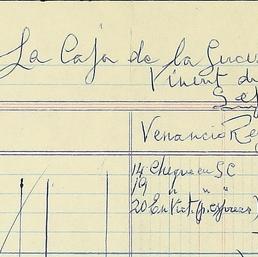 La Caja de la Suces
Vinent du
Venancio Re
14 Cheque en S.C
19 " " "
20 En Vict.